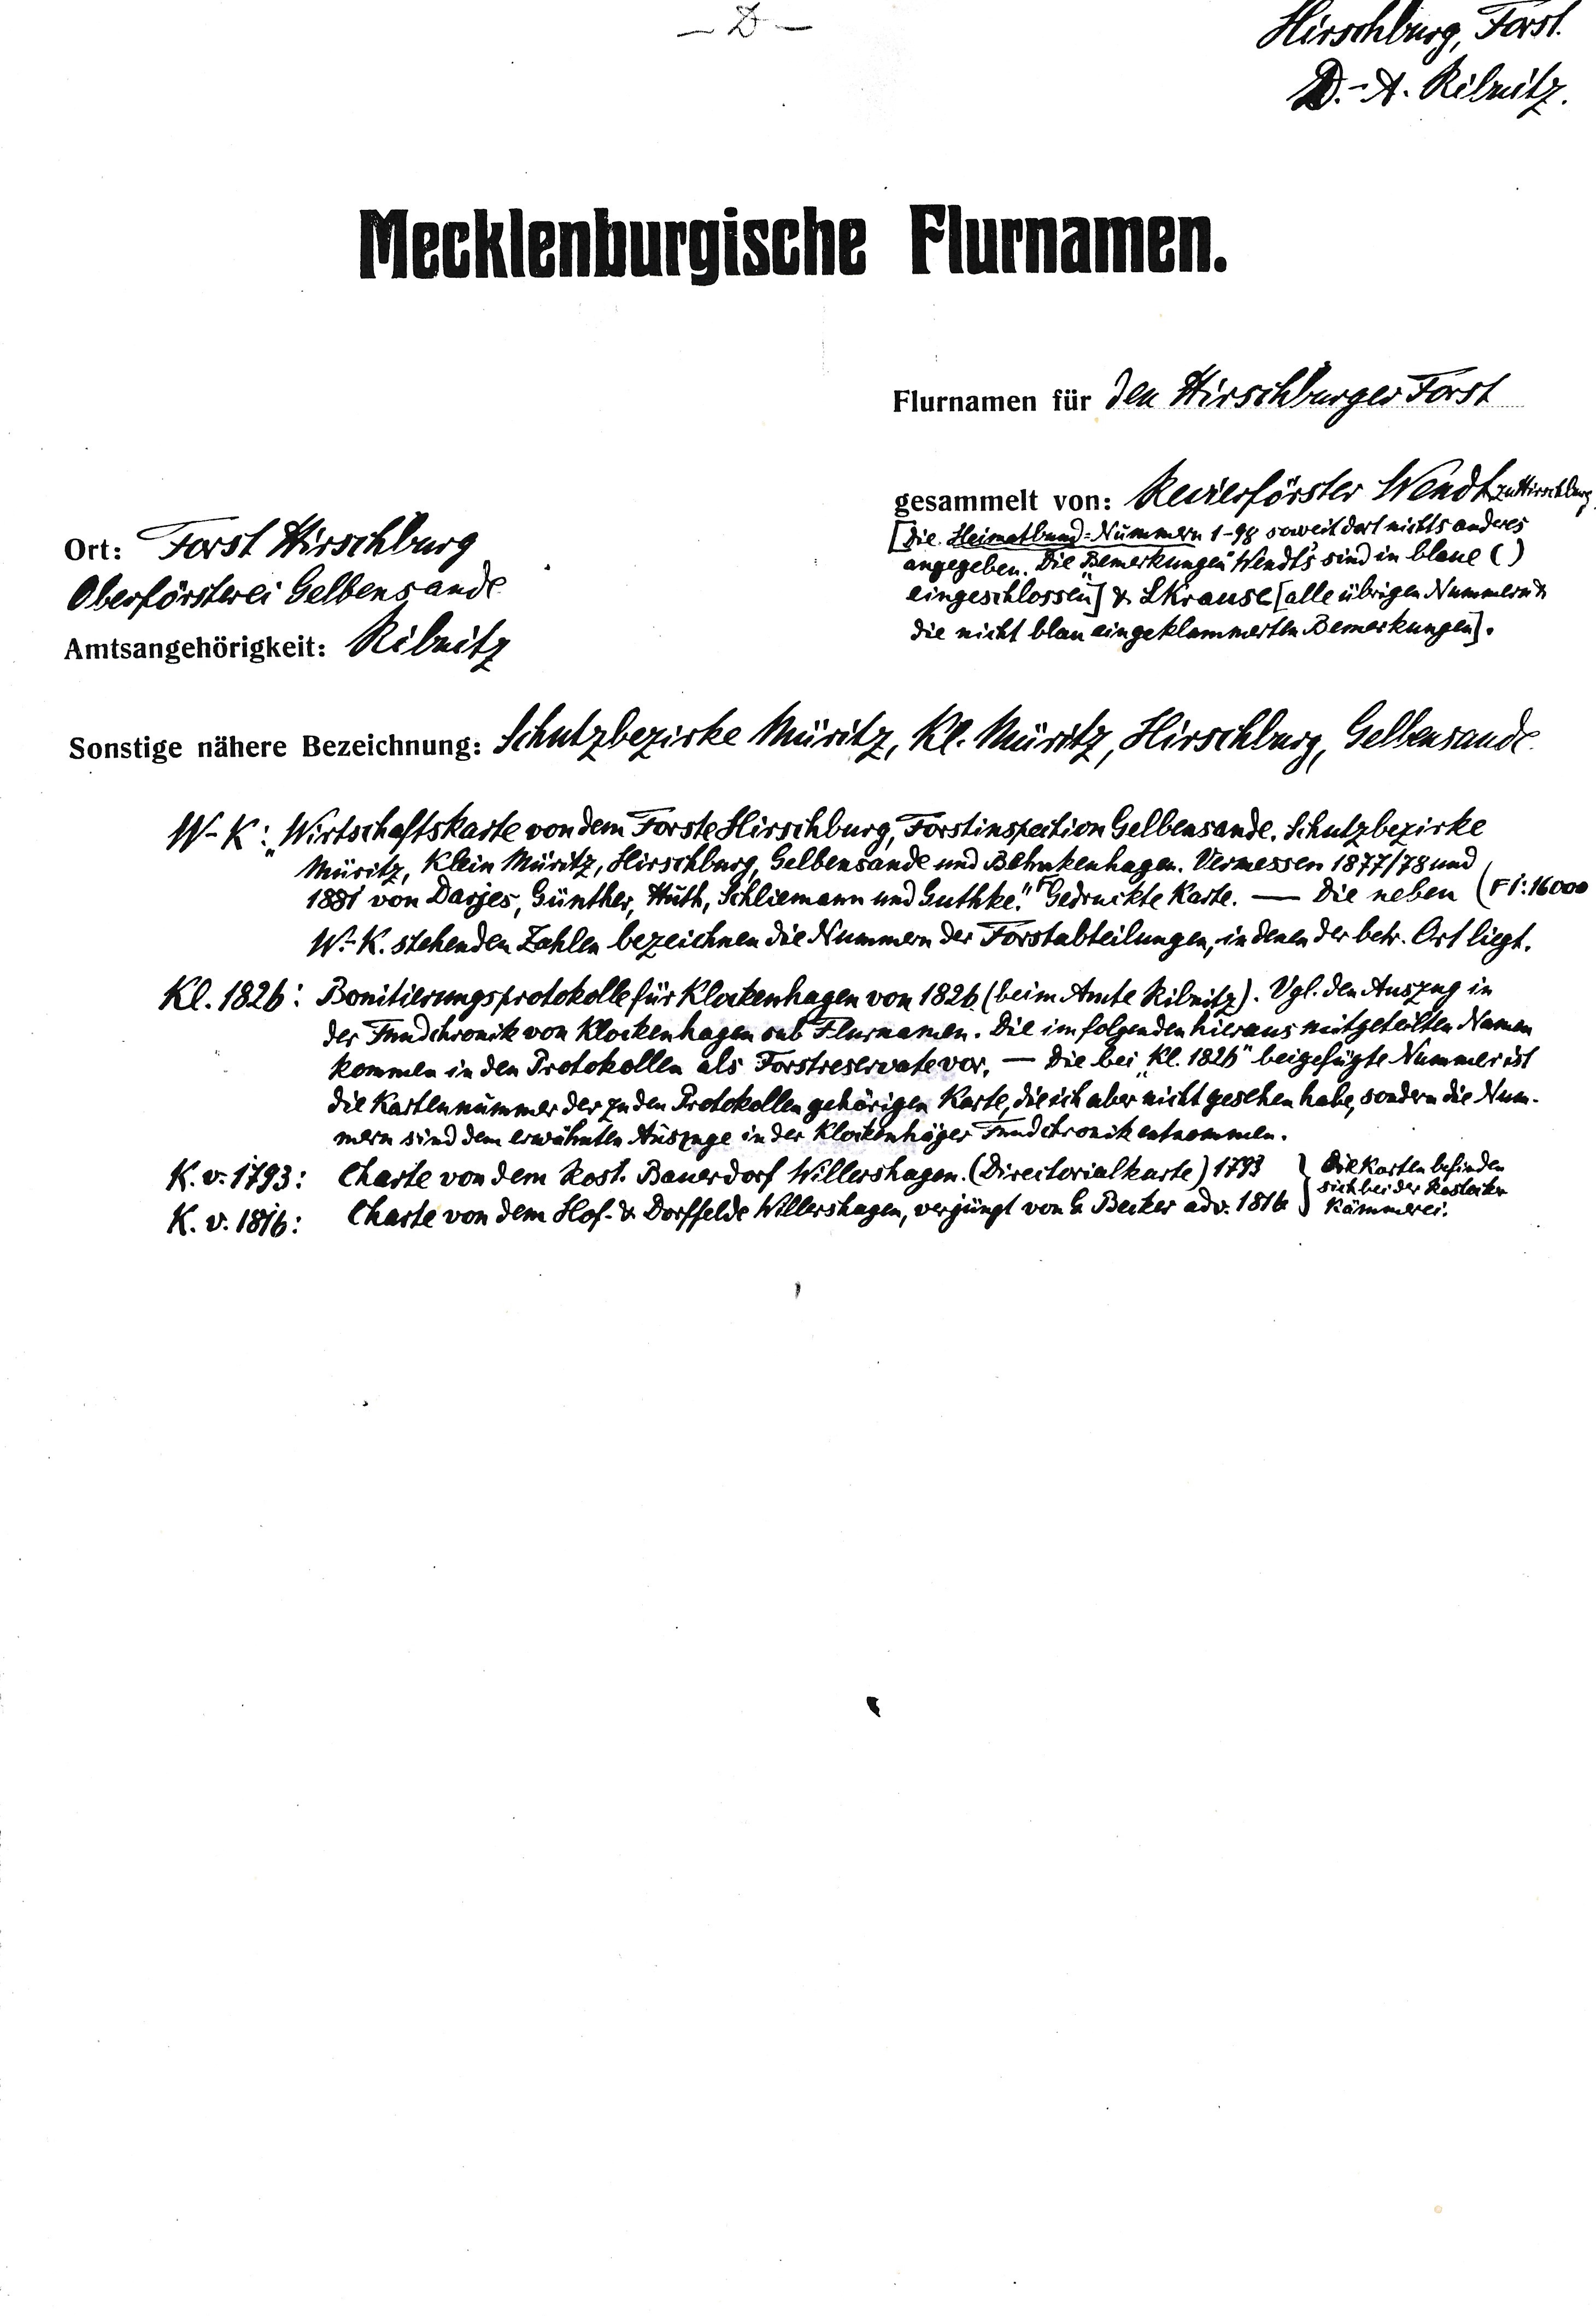 — D —
Hirschburg, Forst.
D.-A. Ribnitz.
Mecklenburgische Flurnamen.
Flurnamen für den Hirschburger Forst
gesammelt von: Revierförster Wendt zu Hirschburg
[Die Heimatbund-Nummern 1-98 soweit dort nichts anderes
angegeben. Die „Bemerkungen" Wendt's sind in blaue ( )
eingeschlossen] & LKrause [alle übrigen Nummern &
die nicht blau eingeklammerten Bemerkungen].
Ort: Forst Hirschburg
Oberförsterei Gelbensande
Amtsangehörigkeit: Ribnitz
Sonstige nähere Bezeichnung: Schutzbezirke Müritz, Kl. Müritz, Hirschburg, Gelbensande.
W-K: „Wirtschaftskarte von dem Forste Hirschburg, Forstinspection Gelbensande. Schutzbezirke
Müritz, Klein Müritz, Hirschburg, Gelbensande und Behnkenhagen. Vermessen 1877/78 und
1881 von Darjes, Günther, Huth, Schliemann und Guthke." Gedruckte Karte. — Die neben (1:16000
W.-K. stehenden Zahlen bezeichnen die Nummern der Forstabteilungen, in denen der betr. Ort liegt.
Kl. 1826: Bonitierungsprotokolle für Klockenhagen von 1826 (beim Amte Ribnitz). Vgl. den Auszug in
der Fundchronik von Klockenhagen sub Flurnamen. Die im folgenden hieraus mitgeteilten Namen
kommen in den Protokollen als Forstreservate vor. — Die bei „Kl. 1826" beigefügte Nummer ist
die Kartennummer der zu den Protokollen gehörigen Karte, die ich aber nicht gesehen habe, sondern die Num-
mern sind dem erwähnten Auszuge in der Klockenhäger Fundchronik entnommen.
K. v. 1793: Charte von dem Rost. Bauerdorf Willershagen. (Directorialkarte) 1793
K. v. 1816: Charte von dem Hof- & Dorffelde Willershagen, verjüngt von G. Becker adv. 1816
Die Karten befinden
sich bei der Rostocker
Kämmerei.